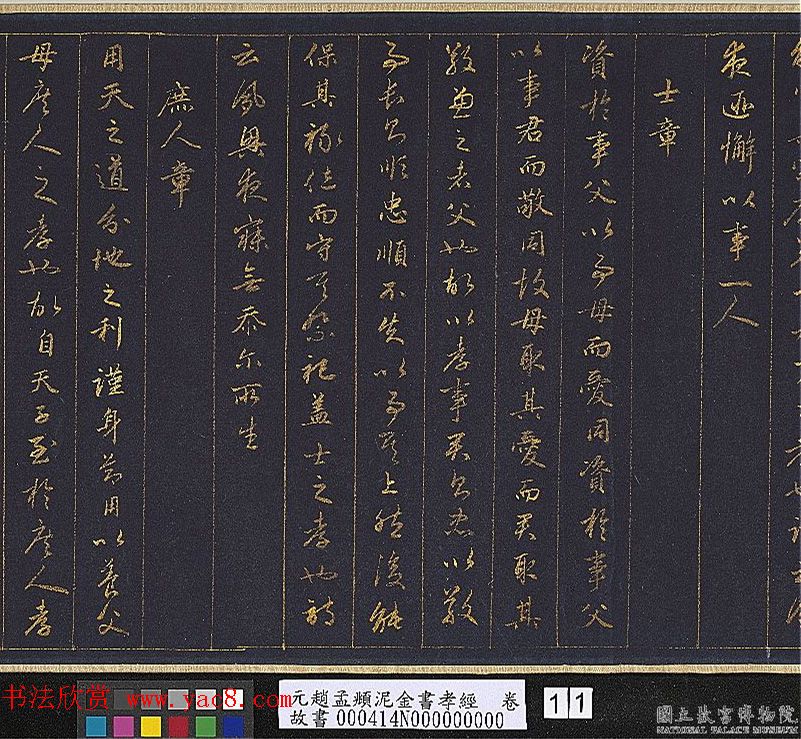 夜匪懈以事一人
士章
資於事父以事母而愛同資於事父
以事君而敬同故母取其愛而君取其
敬兼之者父也故以孝事君則忠以敬
事長則順忠順不失以事其上然後能
保其祿位而守其祭祀蓋士之孝也詩
云夙興夜寐無忝尔所生
庶人章
用天之道分地之利謹身節用以養父
母庶人之孝也故自天子至於庶人孝
书法欣赏 www.yac8.com
元趙孟頫泥金書孝經 卷
故書 000414N000000000
11
國立故宮博物院
NATIONAL PALACE MUSEUM